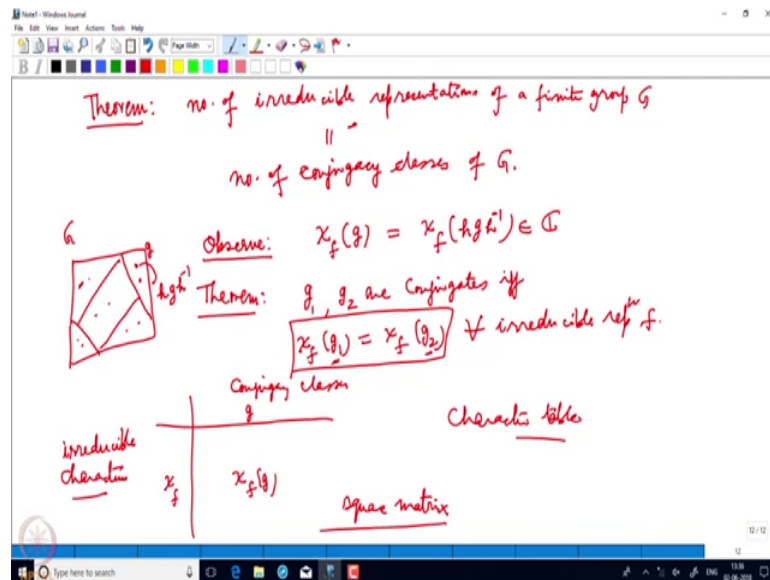 Note1 - Windows Journal
File Edit View Insert Actions Tools Help
Page Width
B I
Theorem: no. of irreducible representations of a finite group G
||
no. of conjugacy classes of G.
G
g
hgh⁻¹
Observe: χ_f(g) = χ_f(hgh⁻¹) ∈ ℂ
Theorem: g₁, g₂ are conjugates iff
χ_f(g₁) = χ_f(g₂) ∀ irreducible repⁿ f.
Conjugacy classes
g
Character table
irreducible
characters
χ_f
χ_f(g)
square matrix
12 / 12
12
Type here to search
ENG
13:36
02-06-2018